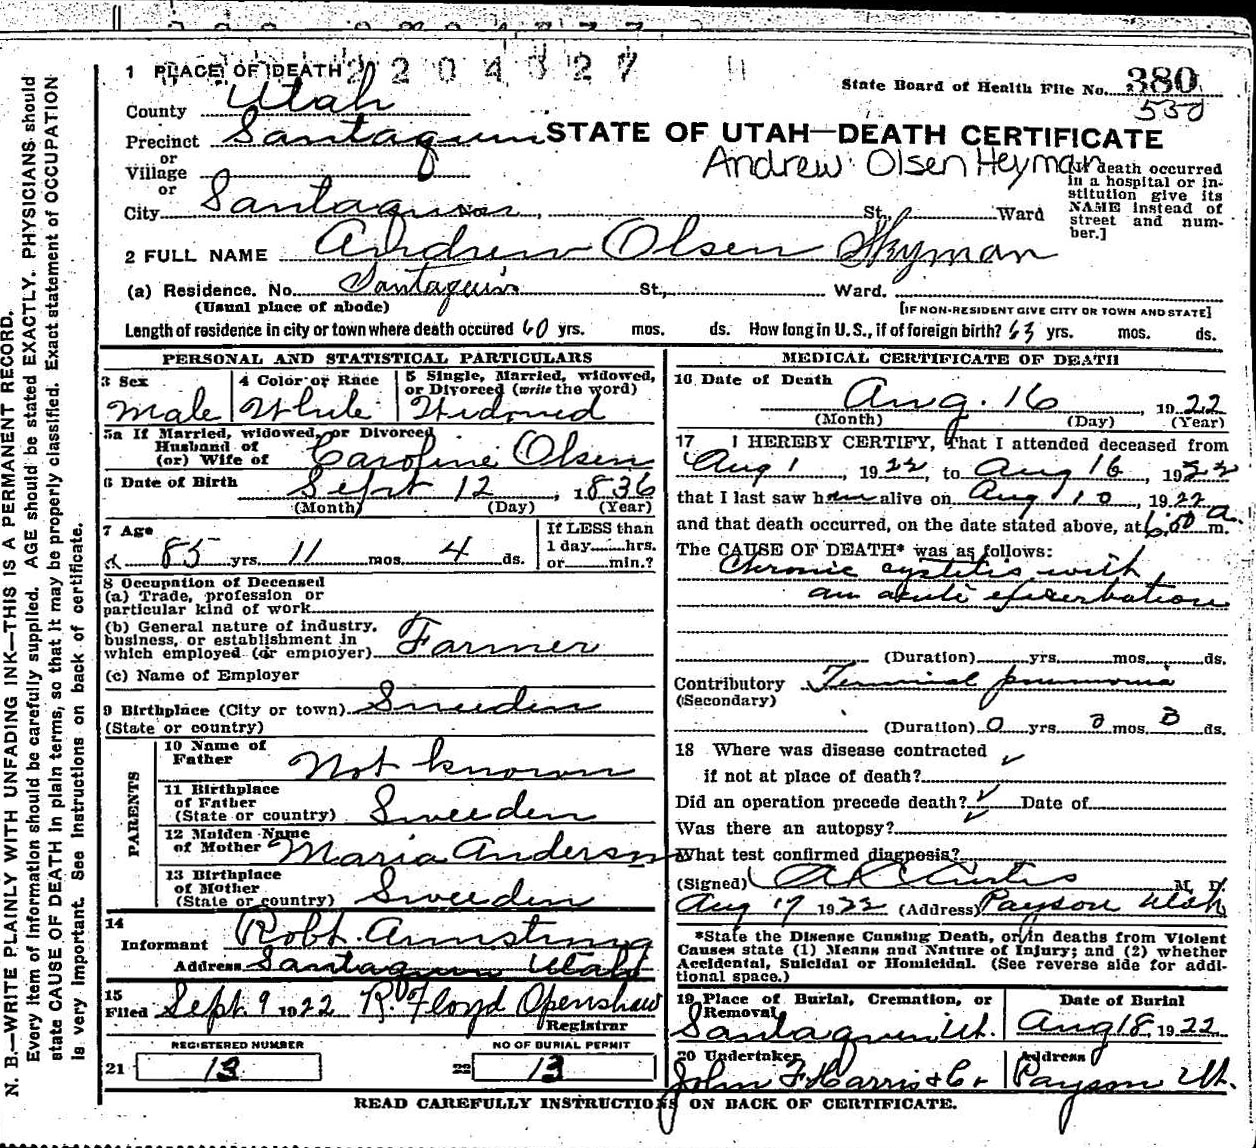 2204327
1 PLACE OF DEATH
State Board of Health File No. 380
County Utah
530
Precinct Santaquin STATE OF UTAH—DEATH CERTIFICATE
or
Village
Andrew Olsen Heyman
or
City Santaquin No. , St., Ward
[If death occurred
in a hospital or in-
stitution give its
NAME instead of
street and num-
ber.]
2 FULL NAME Andrew Olsen Hyman
(a) Residence. No. Santaquin St., Ward.
(Usual place of abode) [IF NON-RESIDENT GIVE CITY OR TOWN AND STATE]
Length of residence in city or town where death occured 60 yrs. mos. ds. How long in U.S., if of foreign birth? 63 yrs. mos. ds.
PERSONAL AND STATISTICAL PARTICULARS
3 Sex 4 Color or Race 5 Single, Married, widowed,
or Divorced (write the word)
Male White Widowed
5a If Married, widowed, or Divorced
Husband of
(or) Wife of Caroline Olsen
6 Date of Birth Sept 12, 1836
(Month) (Day) (Year)
7 Age If LESS than
1 day......hrs.
or......min.?
85 yrs. 11 mos. 4 ds.
8 Occupation of Deceased
(a) Trade, profession or
particular kind of work
(b) General nature of industry,
business, or establishment in
which employed (or employer) Farmer
(c) Name of Employer
9 Birthplace (City or town) Sweeden
(State or country)
PARENTS
10 Name of
Father Not known
11 Birthplace
of Father
(State or country) Sweeden
12 Maiden Name
of Mother Maria Anderson
13 Birthplace
of Mother
(State or country) Sweeden
14
Informant Robt. Armstrong
Address Santaquin Utah
15
Filed Sept. 9 1922 R. Floyd Openshaw
Registrar
REGISTERED NUMBER NO OF BURIAL PERMIT
21 13 22 13
MEDICAL CERTIFICATE OF DEATH
16 Date of Death
Aug. 16, 1922
(Month) (Day) (Year)
17 I HEREBY CERTIFY, That I attended deceased from
Aug 1, 1922, to Aug 16, 1922
that I last saw him alive on Aug 10, 1922
and that death occurred, on the date stated above, at a. m.
The CAUSE OF DEATH* was as follows:
Chronic cystitis with
an acute exserbation
(Duration) yrs. mos. ds.
Contributory Terminal pneumonia
(Secondary)
(Duration) 0 yrs. mos. 3 ds.
18 Where was disease contracted
if not at place of death?
Did an operation precede death? Date of
Was there an autopsy?
What test confirmed diagnosis?
(Signed) A C Curtis M. D.
Aug 17 1922 (Address) Payson Utah
*State the Disease Causing Death, or in deaths from Violent
Causes state (1) Means and Nature of Injury; and (2) whether
Accidental, Suicidal or Homicidal. (See reverse side for addi-
tional space.)
19 Place of Burial, Cremation, or
Removal
Date of Burial
Santaquin Ut. Aug 18, 1922
20 Undertaker Address
John F Harris & Co Payson Ut.
READ CAREFULLY INSTRUCTIONS ON BACK OF CERTIFICATE.
N. B.—WRITE PLAINLY WITH UNFADING INK—THIS IS A PERMANENT RECORD.
Every item of Information should be carefully supplied. AGE should be stated EXACTLY. PHYSICIANS should
state CAUSE OF DEATH in plain terms, so that it may be properly classified. Exact statement of OCCUPATION
is very important. See Instructions on back of certificate.